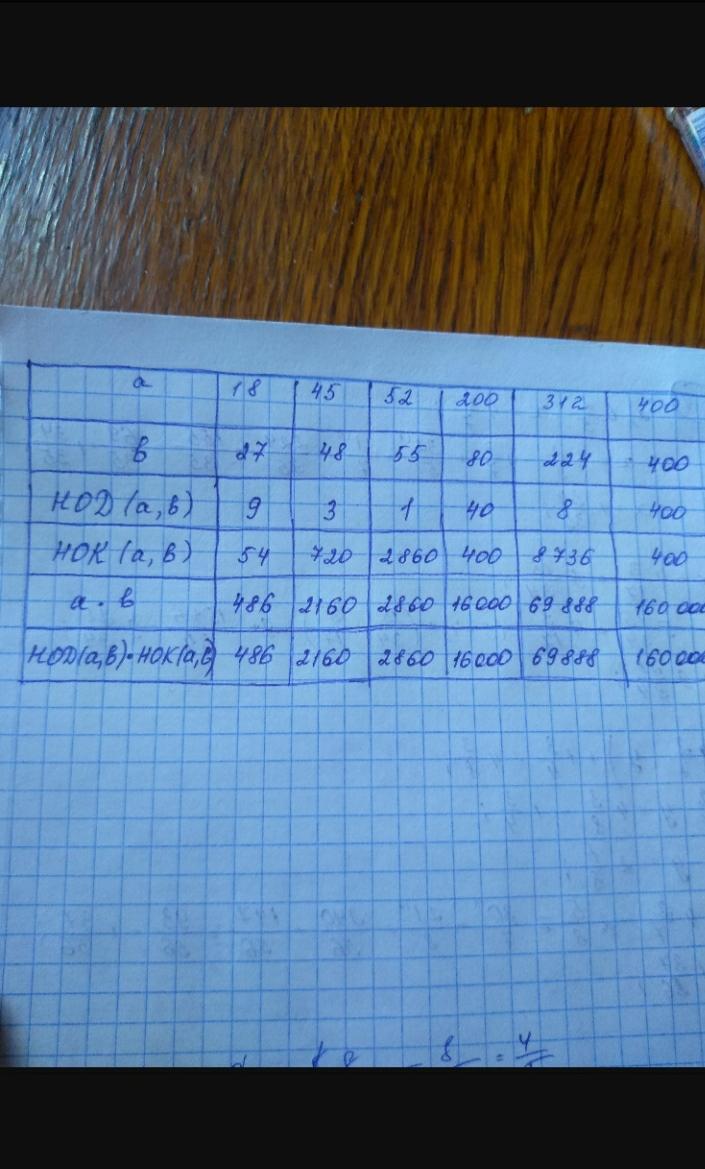 а 18 45 52 200 312 400
в 27 48 55 80 224 400
НОД (а, в) 9 3 1 40 8 400
НОК (а, в) 54 720 2860 400 8736 400
а · в 486 2160 2860 16000 69888 160 000
НОД(а,в)·НОК(а,в) 486 2160 2860 16000 69888 160 000